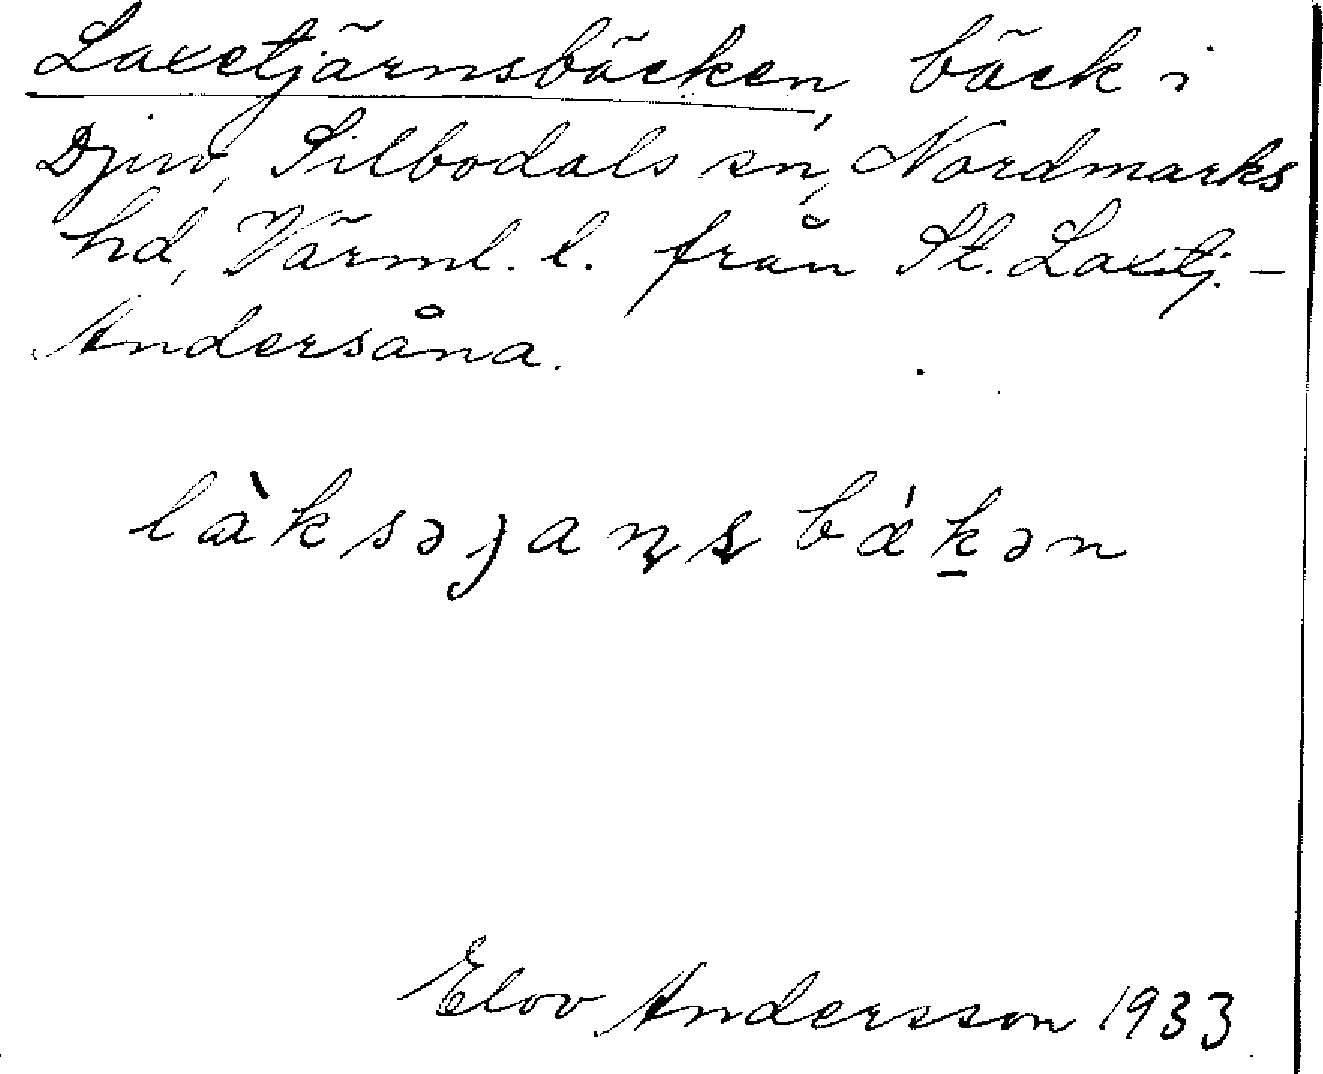 Laxetjärnsbäcken, bäck i
Djuv, Silbodals sn, Nordmarks
hd, Värml. l. från St. Laxtj. –
Andersåna.
làksəȷaɳʂbǽkən
Elov Andersson 1933